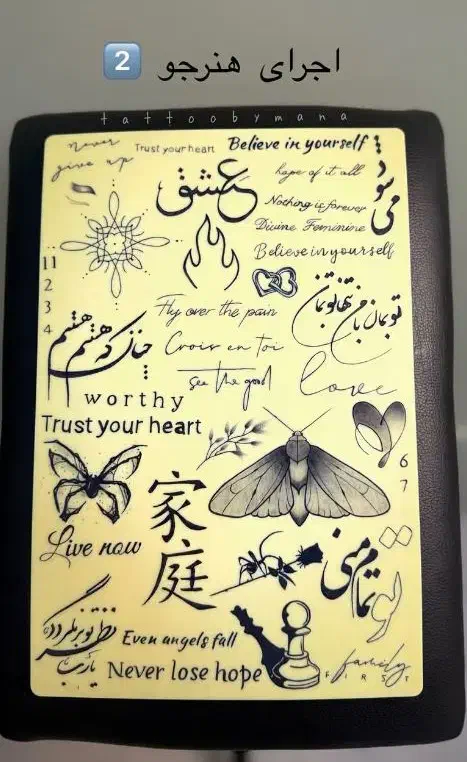 اجرای هنرجو 2
tattoobymana
never
give up
Trust your heart
Believe in yourself
عشق
hope of it all
می‌شود
Nothing is forever
Divine Feminine
Believe in yourself
11
2
3
4
Fly over the pain
چنان که هستم هستم
Crois en toi
see the good
love
worthy
Trust your heart
6
7
家庭
Live now
تو تمام منی
Even angels fall
Never lose hope
family
FIRST